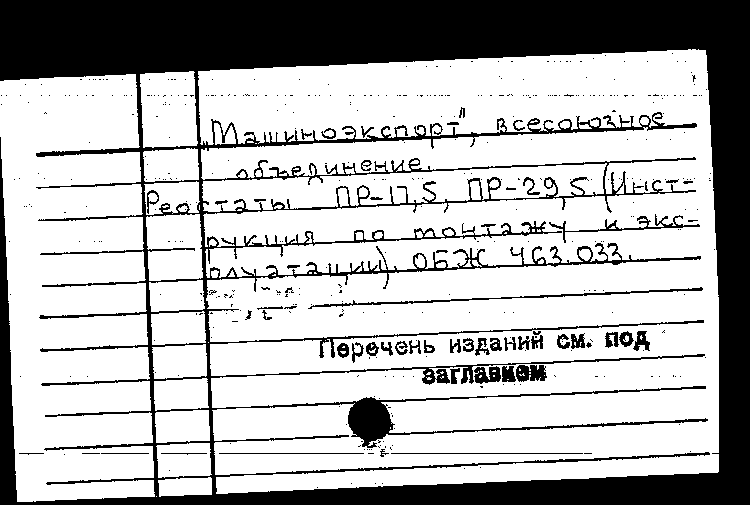 „Машиноэкспорт", всесоюзное
объединение.
Реостаты ПР-17,5, ПР-29,5. (Инст-
рукция по монтажу и экс-
плуатации). ОБЖ 463.033.
Перечень изданий см. под
заглавием